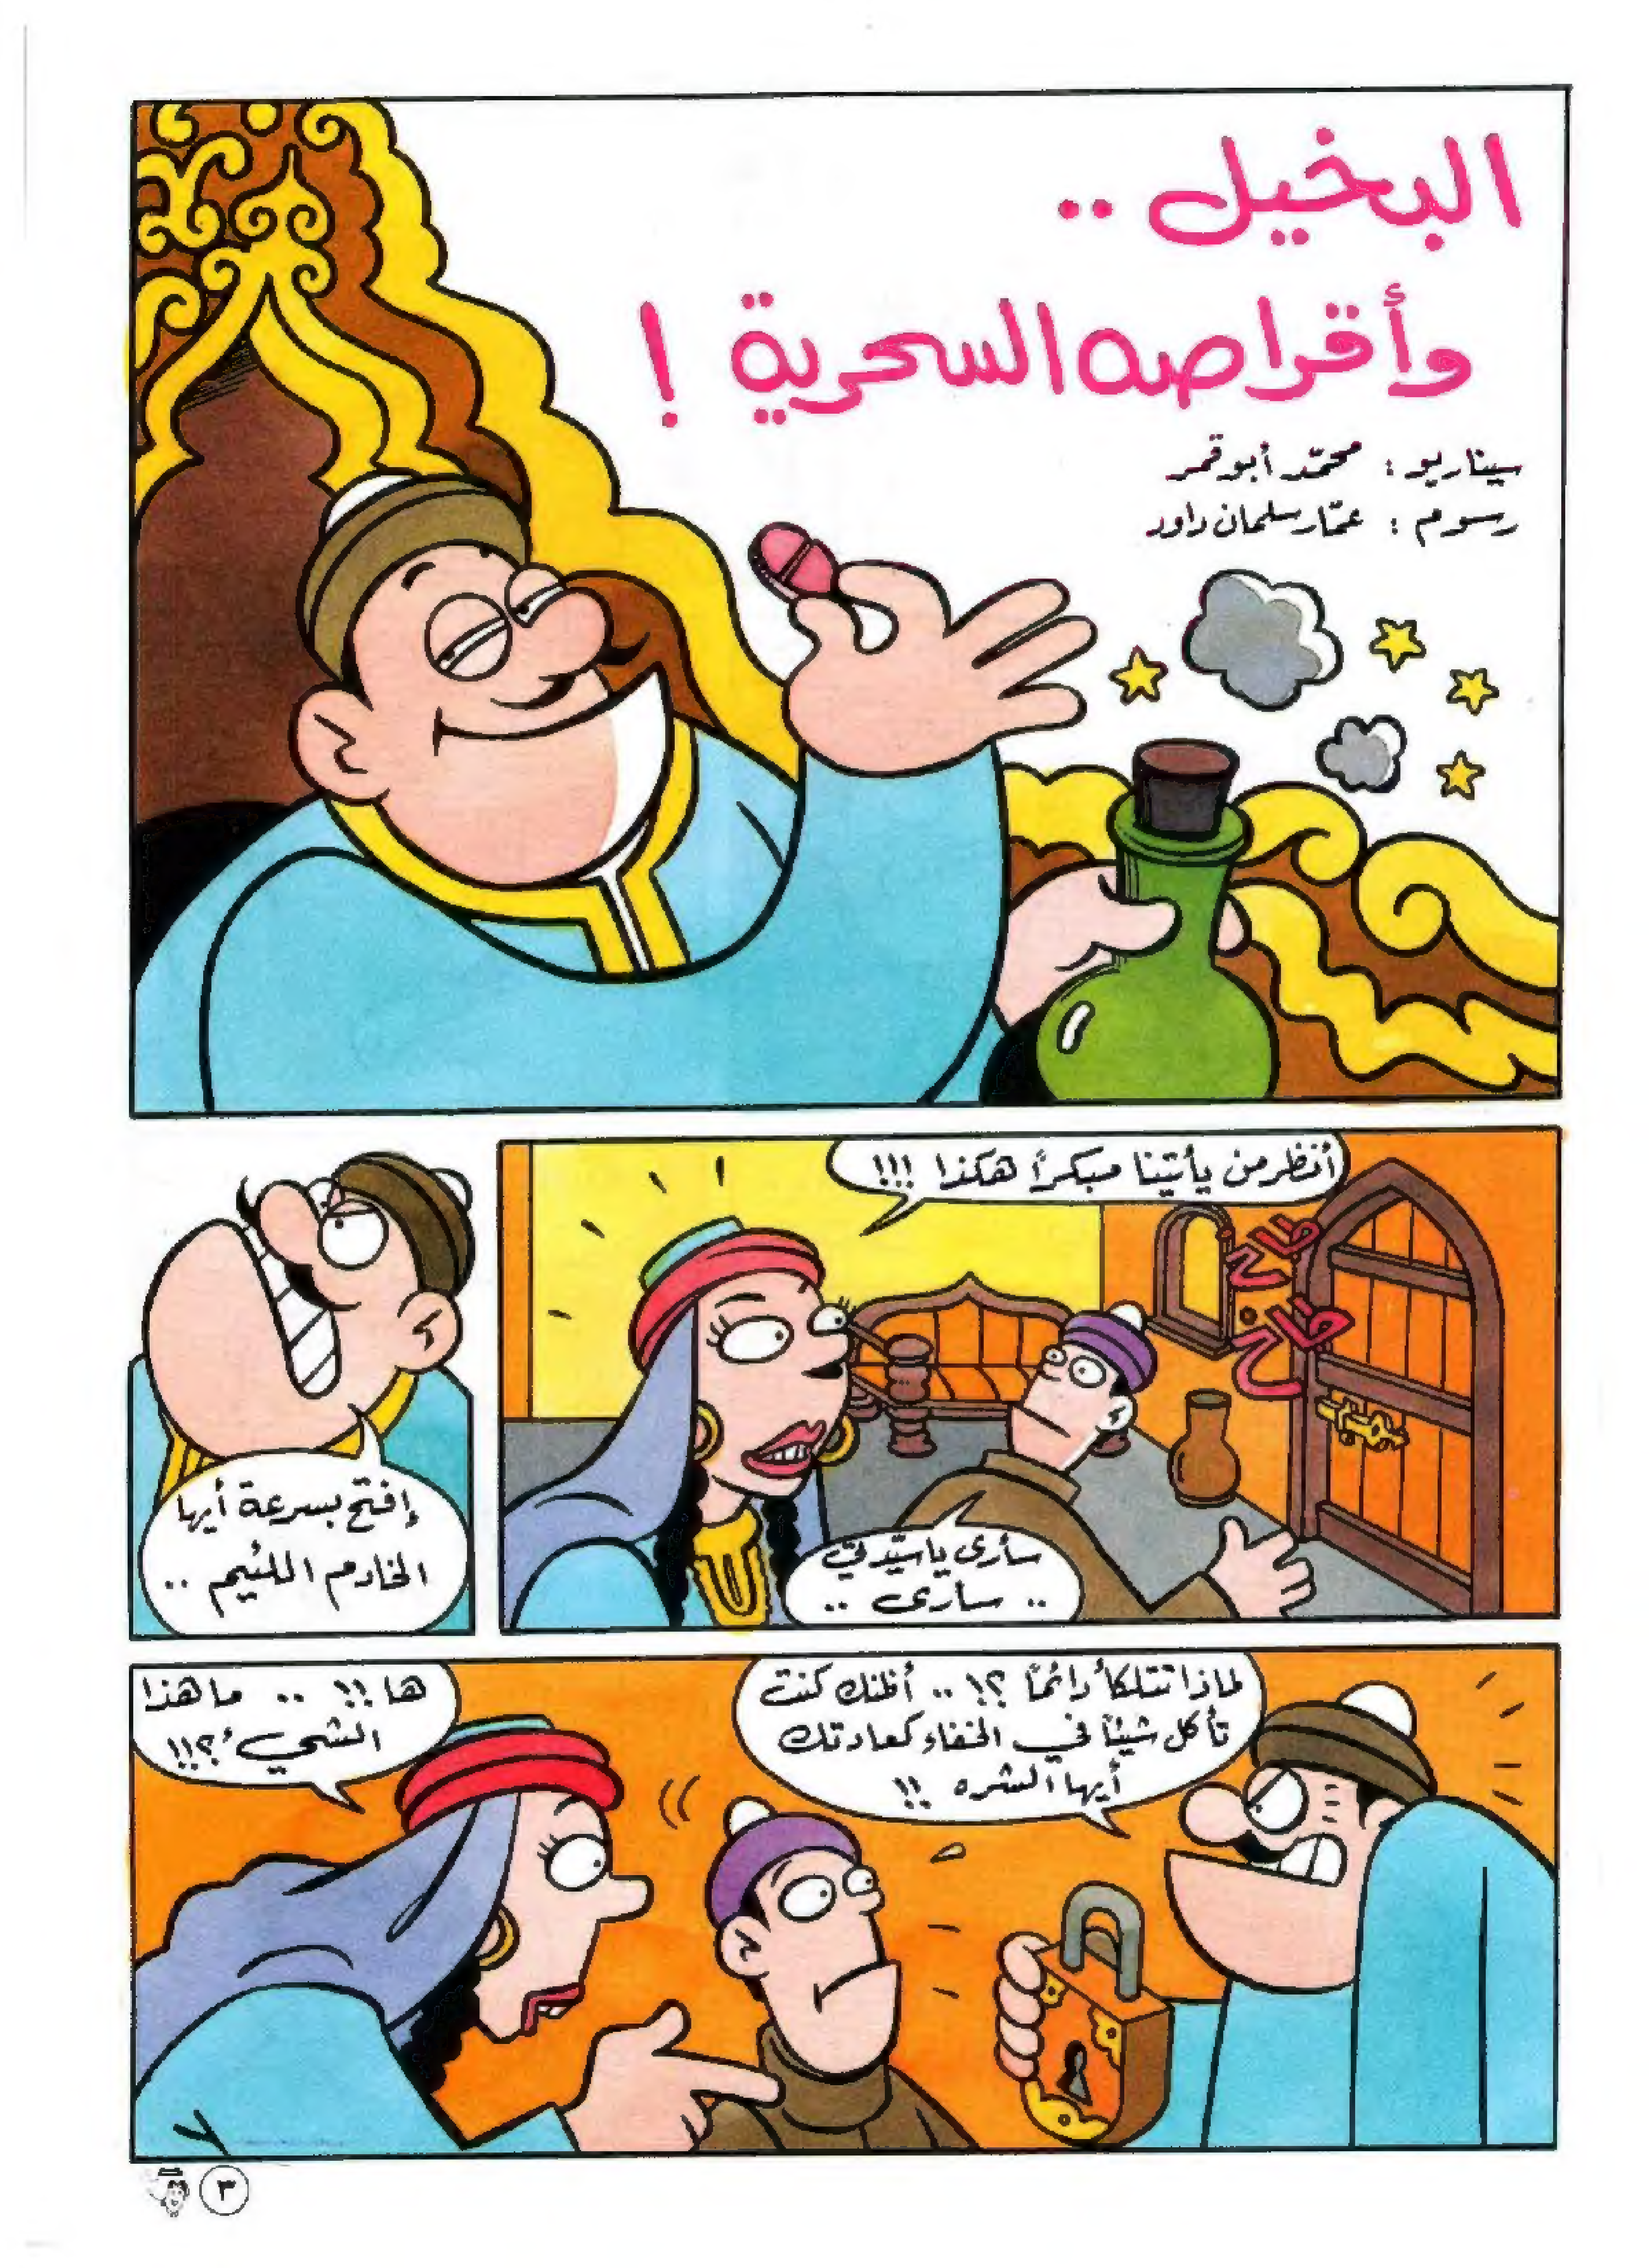 البخيل ..
وأقراصه السحرية !
سيناريو : محمّد أبو قمر
رسوم : عمّار سلمان داود
أنظر من يأتينا مبكراً هكذا !!!
طاخ
طاخ
سأرى ياسيّدتي
.. سأرى ..
إفتح بسرعة أيها
الخادم اللئيم ..
لماذا تتلكأ دائماً ؟! .. أظنك كنت
تأكل شيئاً في الخفاء كعادتك
أيها الشره !!
ها !! .. ما هذا
الشيء ؟!!
٣